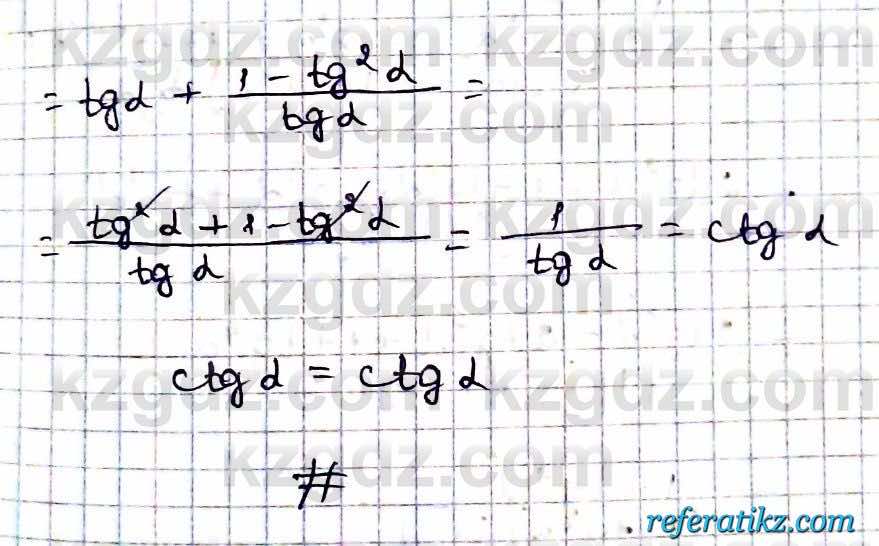 = tg α + (1 - tg² α) / (tg α) =
= (tg² α + 1 - tg² α) / (tg α) = 1 / (tg α) = ctg α
ctg α = ctg α
#
kzgdz.com kzgdz.com
kzgdz.com
kzgdz.com kzgdz.com
kzgdz.com
kzgdz.com kzgdz.com
kzgdz.com
referatikz.com